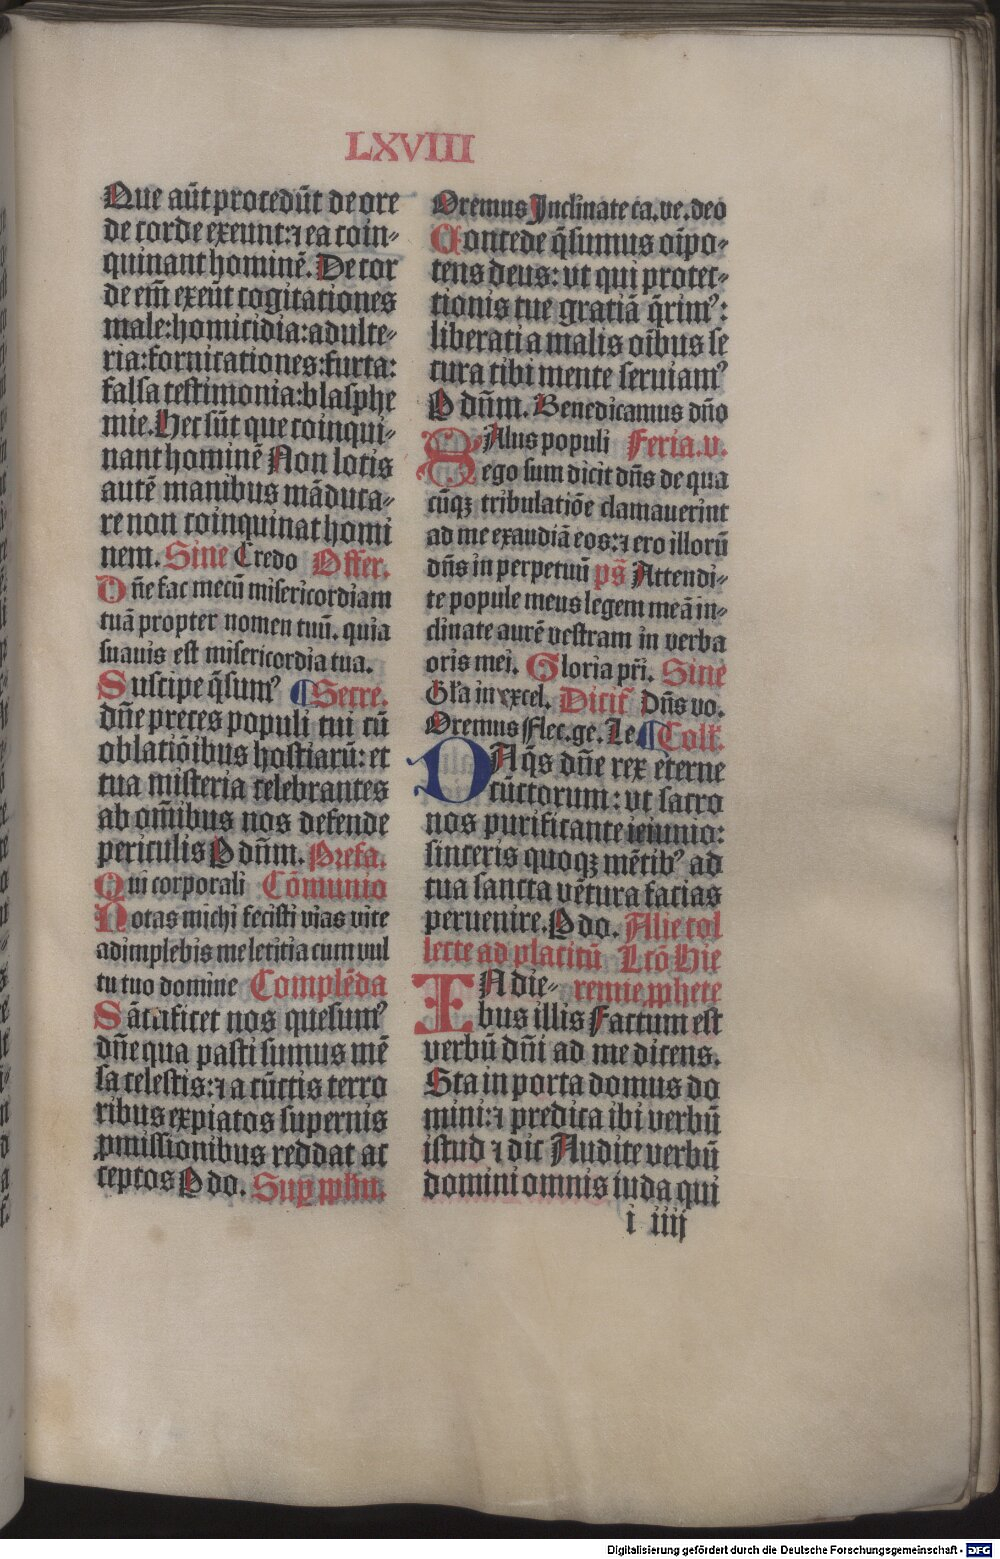 LXVIII
Que aūt procedūt de ore
de corde exeunt:⁊ ea coin-
quinant hominē. De cor
de em̄ exeūt cogitationes
male:homicidia:adulte-
ria:fornicationes:furta:
falsa testimonia:blasphe
mie. Hec sūt que coinqui-
nant hominē Non lotis
autē manibus māduca-
re non coinquinat homi
nem. Sine Credo Offer.
Dñe fac mecū misericordiam
tuā propter nomen tuū. quia
suauis est misericordia tua.
Suscipe q̄sumꝰ ¶ Secre.
dñe preces populi tui cū
oblatiōibus hostiarū: et
tua misteria celebrantes
ab om̄ibus nos defende
periculis P dñm. Prefa.
Qui corporali Cōmunio
Notas michi fecisti vias vite
adimplebis me letitia cum vul
tu tuo domine Complēda
Sāctificet nos quesumꝰ
dñe qua pasti sumus mē
sa celestis:⁊ a cūctis terro
ribus expiatos supernis
ꝓmissionibus reddat ac
ceptos P do. Suꝑ pplm.
Oremus Inclinate ca. ve. deo
Concede q̄sumus oīpo-
tens deus: vt qui protec-
tionis tue gratiā q̄rimꝰ:
liberati a malis oībus se
cura tibi mente seruiamꝰ
P dñm. Benedicamus dño
Salus populi Feria. v.
ego sum dicit dñs de qua
cūqꝫ tribulatiōe clamauerint
ad me exaudiā eos:⁊ ero illorū
dñs in perpetuū ps̄ Attendi-
te popule meus legem meā in-
clinate aurē vestram in verba
oris mei. Gloria pr̄i. Sine
Gl'a in excel. Dicit' Dñs vo.
Oremus Flec. ge. Le ¶ Coll'.
DA q̄s dñe rex eterne
cūctorum: vt sacro
nos purificante ieiunio:
sinceris quoqꝫ mētibꝰ ad
tua sancta vētura facias
peruenire. P do. Alie col
lecte ad placitū Lcō Hie
IN die- remie ꝓphete
bus illis Factum est
verbū dñi ad me dicens.
Sta in porta domus do
mini:⁊ predica ibi verbū
istud ⁊ dic Audite verbū
domini omnis iuda qui
i iiij
Digitalisierung gefördert durch die Deutsche Forschungsgemeinschaft - DFG